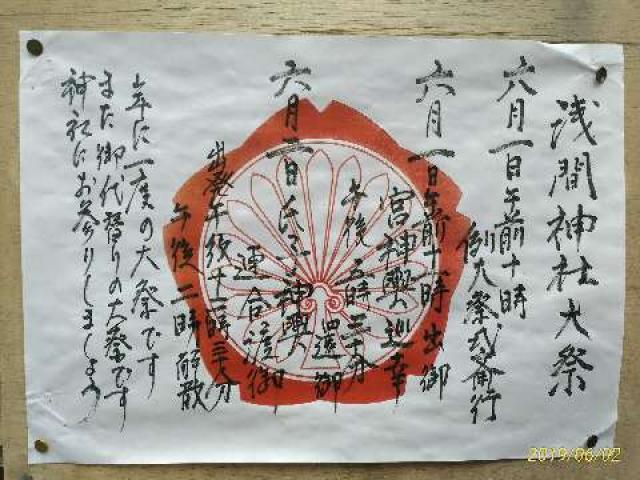 浅間神社大祭
六月一日午前十時
例大祭式斎行
六月一日午前十一時出御
宮神輿巡幸
午後五時三十分還御
六月二日 神輿
連合渡御
出発午後十二時三十分
午後二時解散
年に一度の大祭です
また御代替りの大祭です
神社にお参りしましょう
2019/06/02